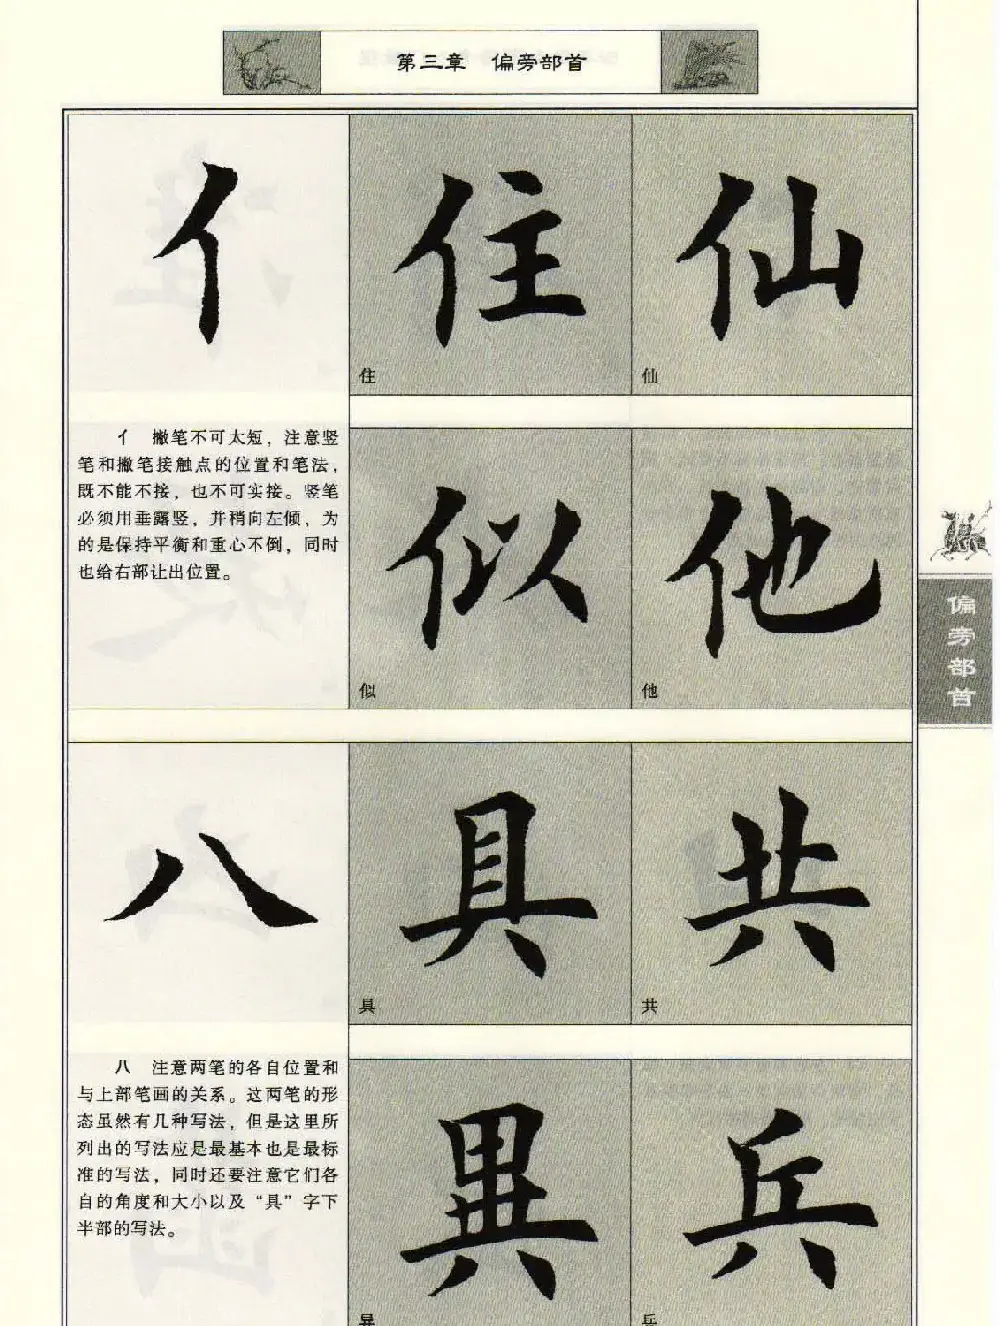 第三章 偏旁部首
亻 住 仙
住 仙
亻 撇笔不可太短，注意竖
笔和撇笔接触点的位置和笔法，
既不能不接，也不可实接。竖笔
必须用垂露竖，并稍向左倾，为
的是保持平衡和重心不倒，同时
也给右部让出位置。
似 他
似 他
偏旁部首
八 具 共
具 共
八 注意两笔的各自位置和
与上部笔画的关系。这两笔的形
态虽然有几种写法，但是这里所
列出的写法应是最基本也是最标
准的写法，同时还要注意它们各
自的角度和大小以及“具”字下
半部的写法。
異 兵
异 兵